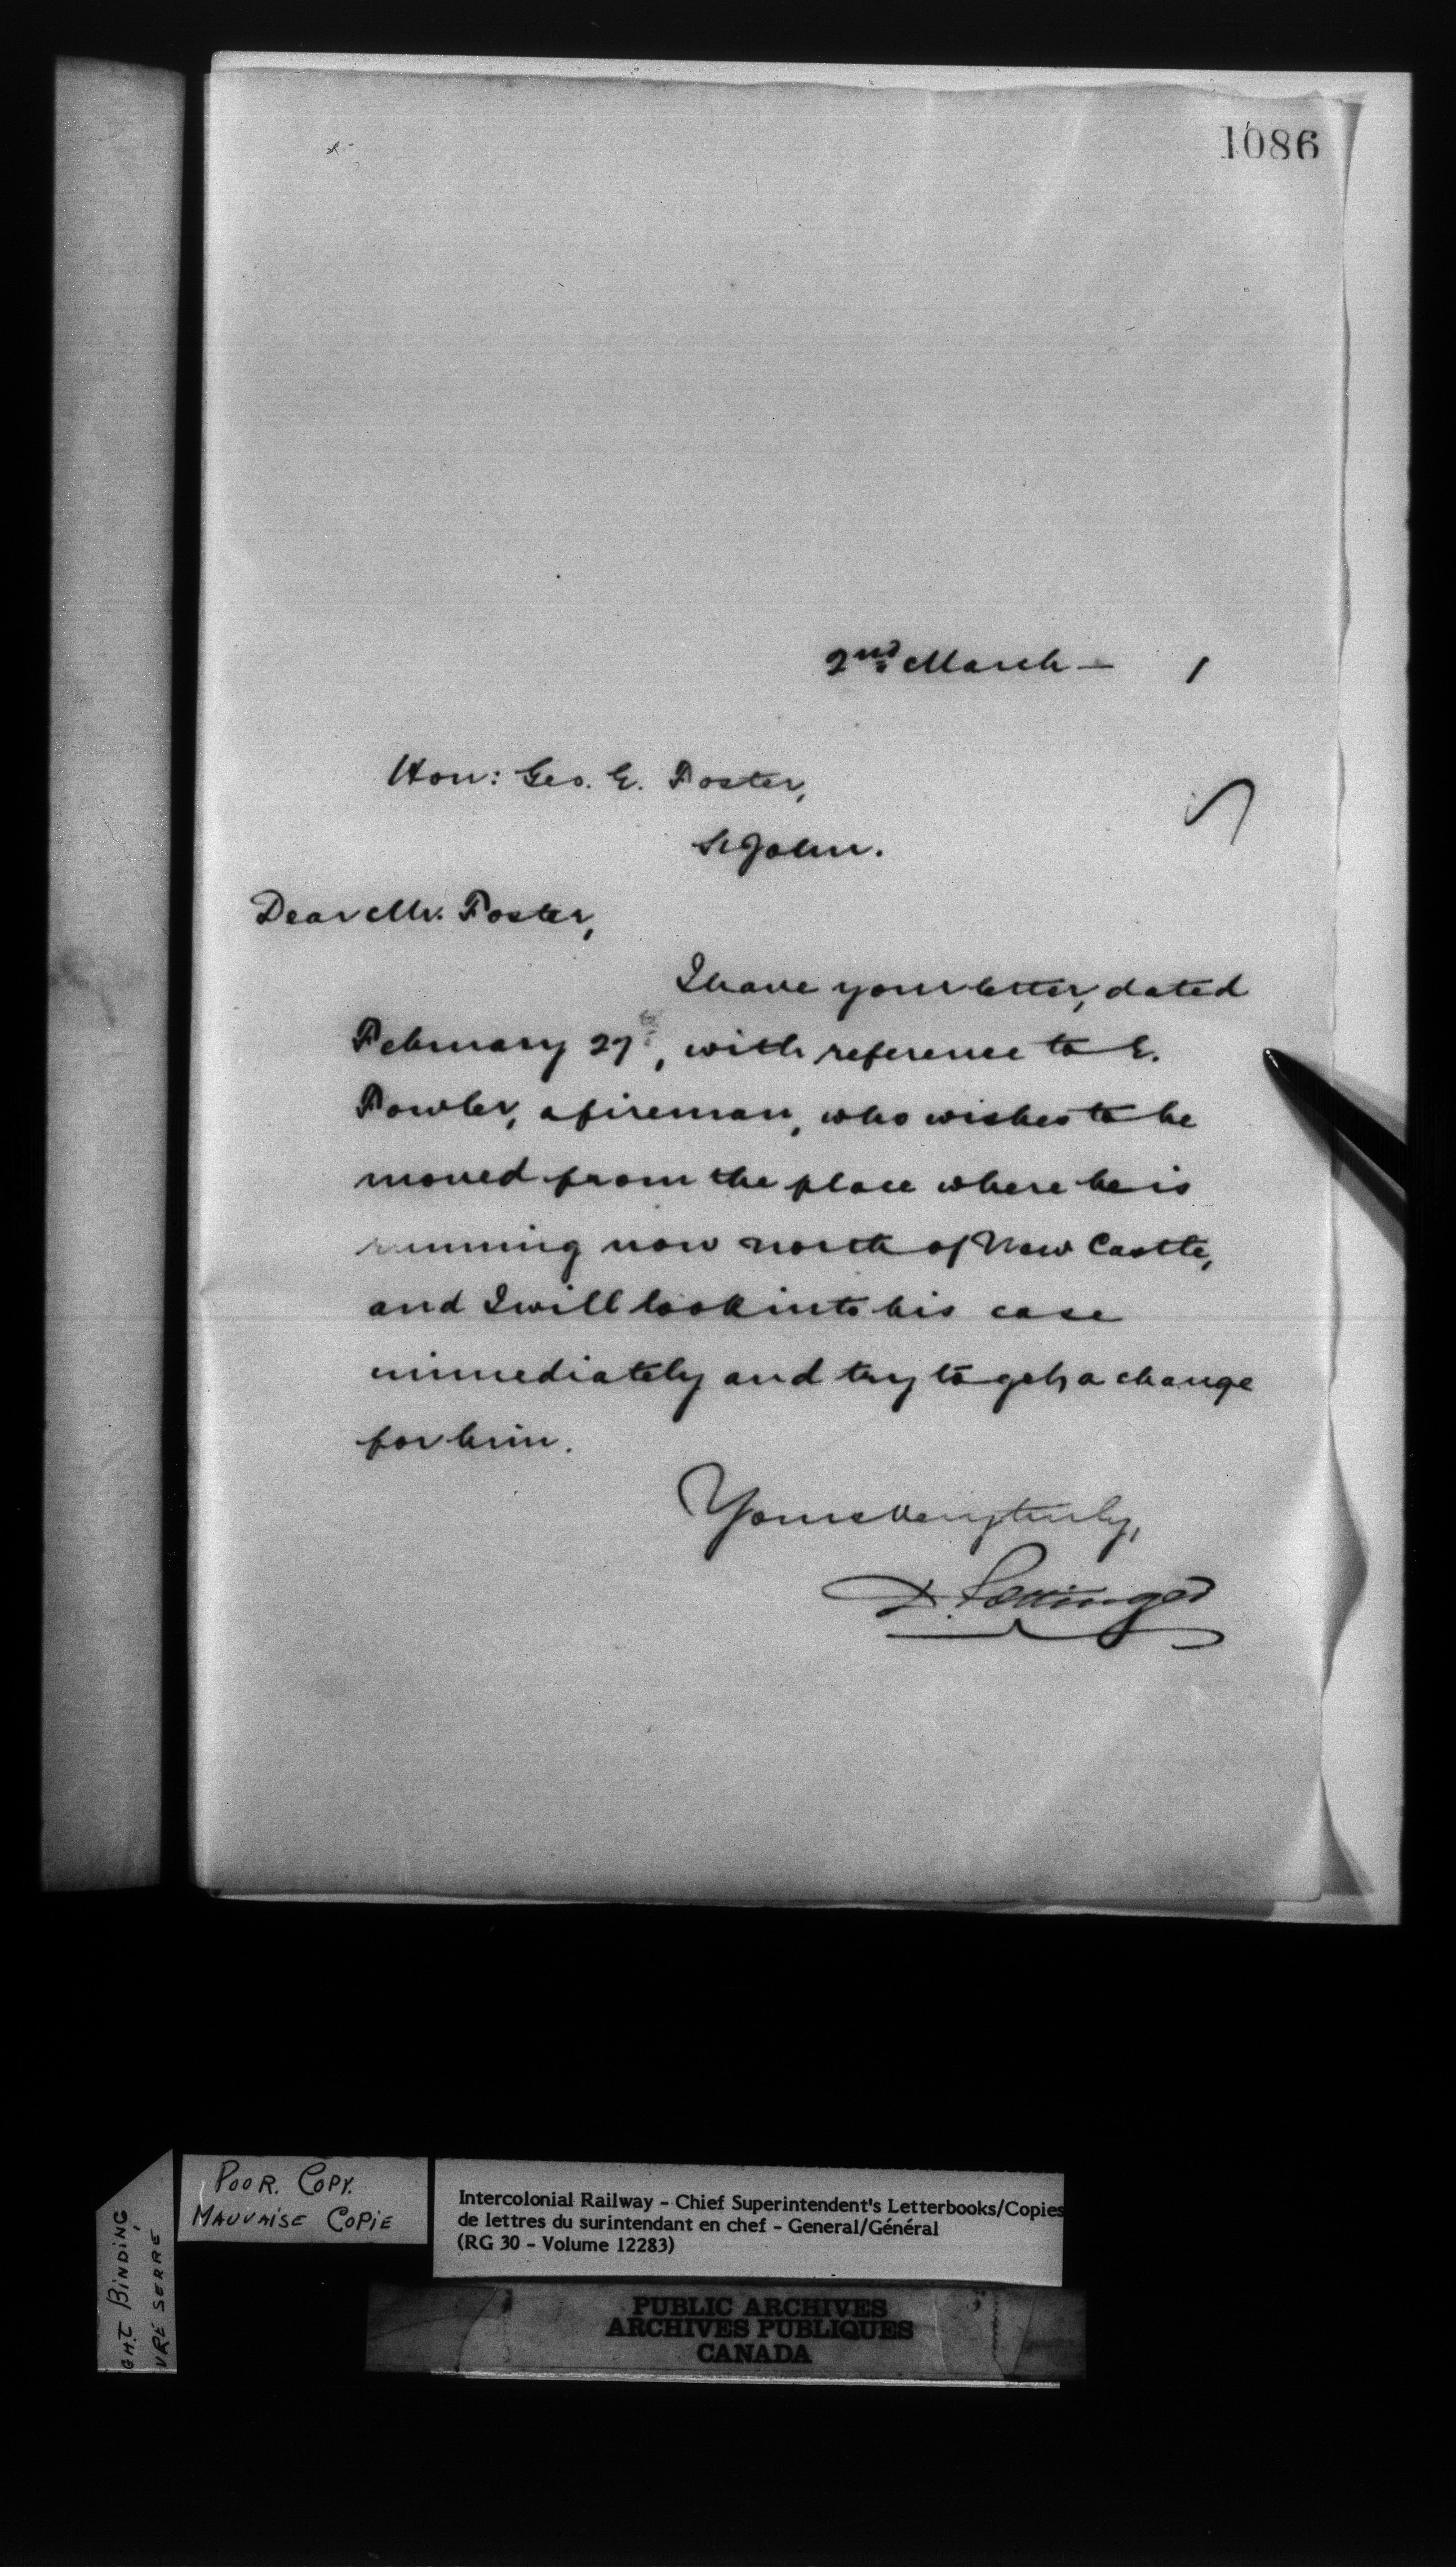 1086
2nd March — 1
Hon: Geo. E. Foster,
St John.
Dear Mr. Foster,
I have your letter, dated
February 27th, with reference to E.
Fowler, a fireman, who wishes to be
moved from the place where he is
running now north of New Castle,
and I will look into his case
immediately and try to get a change
for him.
Yours very truly,
D. Pottinger
POOR. COPY.
MAUVAISE COPIE
GHT BINDING
VRE SERRE
Intercolonial Railway - Chief Superintendent's Letterbooks/Copies
de lettres du surintendant en chef - General/Général
(RG 30 - Volume 12283)
PUBLIC ARCHIVES
ARCHIVES PUBLIQUES
CANADA